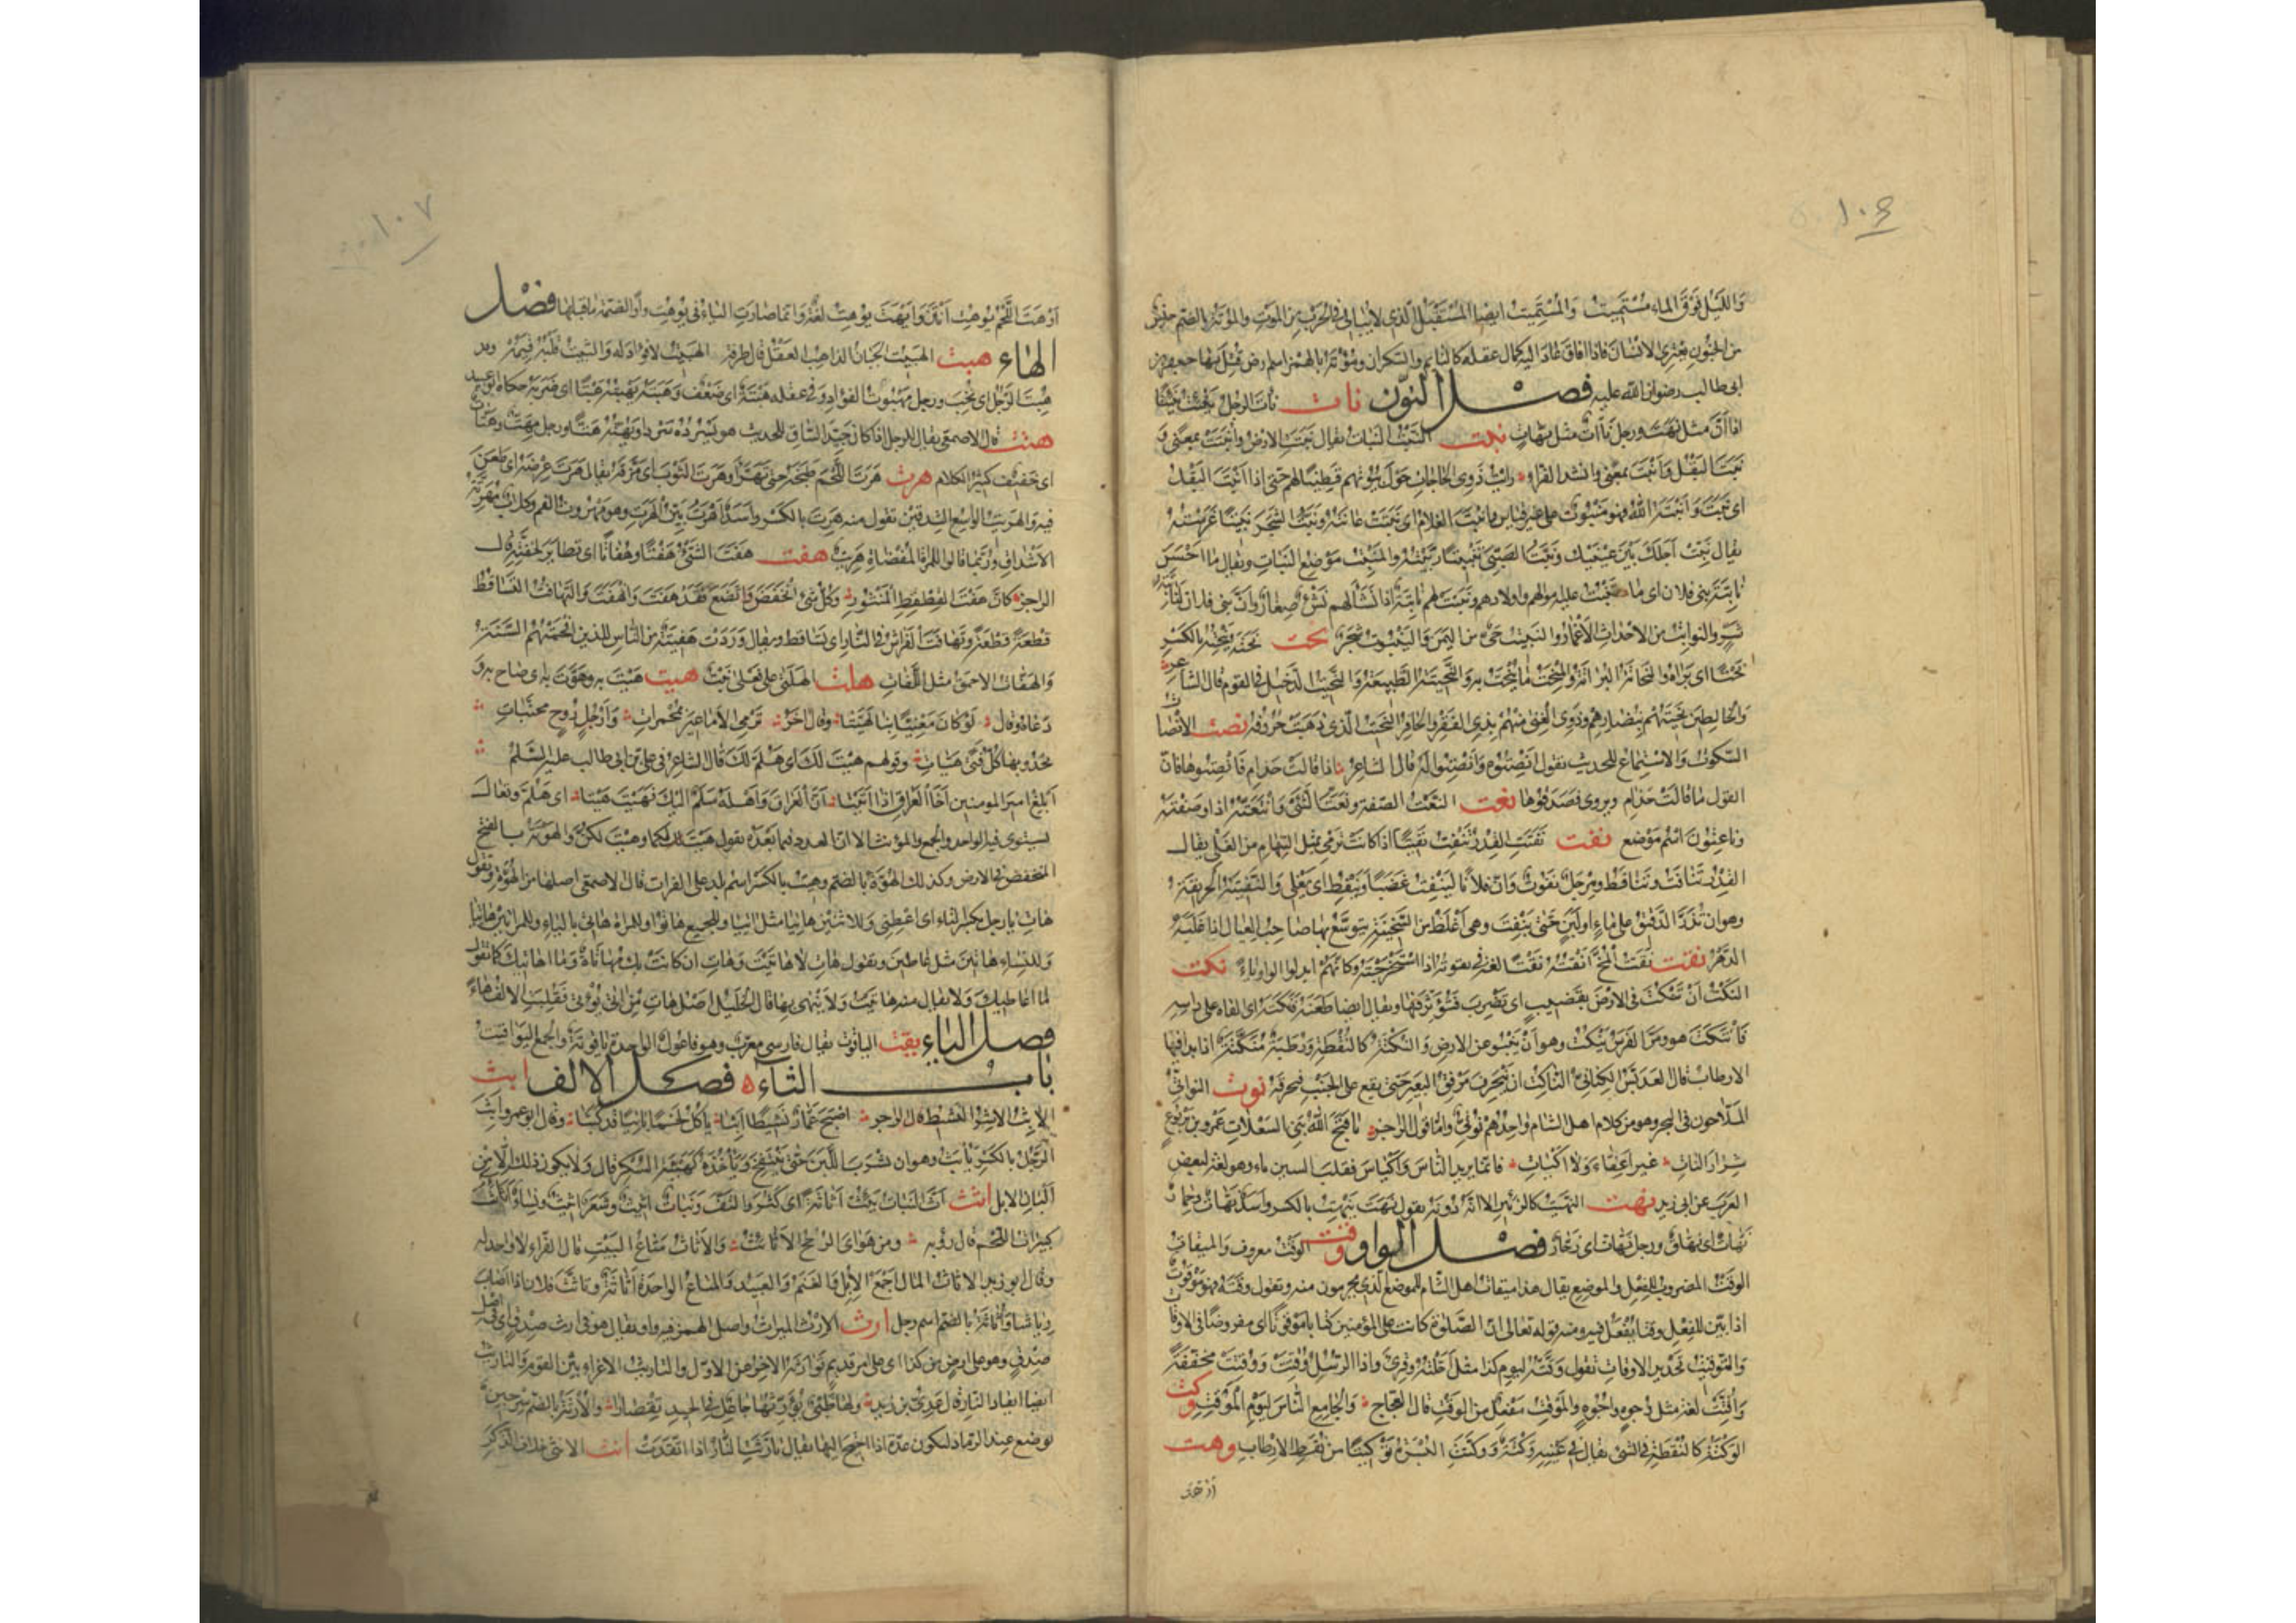 ١٠٦
وَاللَّيْلُ فَوْقَ الماءِ مُسْتَمِيتُ وَالمُسْتَمِيتُ ايضا المُسْتَقْتِلُ الّذى لا يُبالى فى الحَرْبِ مِنَ المَوْتِ والمُوْتَةُ بالضم جِنْسٌ
من الجُنونِ يَعْتَرِى الانْسَانَ فاذا افاقَ عَادَ اليه كمال عقله كالنايم والسّكران ومُؤْتَةُ بالهمز اسم ارض قُتِلَ بها جعفر بن
ابى طالب رضوان الله عليه فصل النون نات نَأَتَ الرجلُ يَنْئِتُ نَئِيتًا
اذا أَنَّ مثل نَهَتَ ورجل نأّات مثل نهّاتٍ نبت النَّبْتُ النَبات يقال نَبَتَتِ الارضُ وأَنْبَتَتْ بمعنًى و
نَبَتَ البَقْلُ وَأَنْبَتَ بمعنى وانشد الفراء رايتُ ذَوِى الحاجاتِ حَوْلَ بُيُوتِهِم قَطِينًا لهم حتى اذا انْبَتَ البَقْلُ
اى نَبَتَ وَأَنْبَتَهُ اللهُ فهو مَنْبُوتٌ على غير قياس وانبتَ الغلامُ اى نَبَتَتْ عانَتُهُ ونَبَّتُّ الشجَرَ تَنْبِيتًا غَرَسْتُهُ
يقال نَبِّتْ اَجَلَكَ بَيْنَ عَيْنَيْكَ ونَبَّتُّ الصَّبِىَّ تَنْبِيتًا رَبَّيْتُهُ والمَنْبِتُ مَوْضِعُ النَبات ويقال ما احْسَنَ
نابِتَةَ بنى فلان اى ما نَبَتَتْ عليه اموالهم واولادهم ونَبَتَتْ لهم نابِتَةٌ اذا نَشَأَ لهم نَشْءٌ صِغَارٌ وَانَّ بنى فلان لَنابِتَةُ
شَرٍّ والنوابِتُ من الاحْداثِ الأَغْمارُ والنَبيتُ حَىٌّ من اليَمَن وَاليَنْبُوتُ شَجَرٌ نحت نَحَتَهُ يَنْحِتُهُ بالكسر
نَحْتًا اى بَرَاهُ والنُّحاتَةُ البُرَايَةُ والمِنْحَتُ ما يُنْحَتُ به وَالنَّحِيتَةُ الطَّبِيعَةُ وَالنَّحِيتُ الدَّخِيلُ فى القوم قال الشاعر
وَالخالِطِينَ نَحِيتَهُم بِنُضارِهِم وَذَوِى الْغِنَى مِنْهُمْ بِذِى الفَقْرِ والحافِرُ النَّحِيتُ الّذى ذَهَبَتْ حُروفُهُ نصت الانْصات
السّكوتُ وَالاسْتِماعُ للحديث تقول أَنْصِتُوهُ وَأَنْصِتُوا لَهُ قال الشاعر اذا قالت حَذامِ فَأَنْصِتوها فانّ
القول ما قالَتْ حَذامِ ويروى فَصَدِّقُوها نعت النَعْتُ الصّفة ونَعَتُّ الشَّىْءَ وانْتَعَتُّهُ اذا وصَفْتَهُ
وناعِتُونَ اسْم مَوْضع نفت نَفَتَتِ القِدْرُ تَنْفِتُ نَفِيتًا اذا كانَتْ تَرْمِى بمثل السِّهام من الغَلْى يقال
القِدْرُ تَنَافَتُ وتَنَافَطُ ومِرْجَلٌ نَفُوتٌ وَانَّ فلانًا لَيَنْفِتُ غَضَبًا ويَنْفِطُ اى يَغْلِى وَالنَّفِيتَةُ الحَرِيقَةُ
وهو ان تَذَرَّ الدَّقيقُ على ماءٍ او لَبَنٍ حَتّى يَنْفِتَ وهى أَغْلَظُ من السَّخِينَةِ يَتَوَسَّعُ بها صاحِبُ العِيالِ اذا غَلَبَهُ
الدَّهْرُ نقت نَقَتُّ المُخَّ أَنْقُتُهُ نَقْتًا لغةٌ فى نَقَوْتُهُ اذا اسْتَخْرَجْتَهُ وكانّهُمْ ابدلوا الواو تاءً نكت
النَكْتُ أَنْ تَنْكُتَ فى الارْضِ بقَضِيبٍ اى تَضْرِبَ فَتُؤَثِّرَ فيها ويقال ايضا طَعَنَهُ فَنَكَتَهُ اى القاه على راسِهِ
فَانْتَكَتَ هو ومَرَّ الفَرَسُ يَنْكُتُ وهو أَنْ يَنْبُوَ عن الارضِ وَالنُّكْتَةُ كالنُّقْطَةِ ورُطَبَةٌ مُنَكِّتَةٌ اذا بدا فيها
الارطاب قال العَدَبَّسُ الكِنانىُّ النّاكِتُ ان يَنْحَرِفَ مِرْفَقُ البَعِيرِ حَتّى يقع على الجَنْبِ فيخرقه نوت النّواتىُّ
المَلّاحون فى البحر وهو من كلام اهل الشام واحِدُهم نُوتِىٌّ وامّا قول الراجز يا قَبَّحَ اللهُ بَنِى السِّعْلاتِ عَمْرَو بنَ يَرْبُوعٍ
شِرَارَ النّاتِ غيرَ أَعِفّاءَ وَلا اكْياتِ فانما يريد الناسَ وَأَكْياسَ فقلب السين تاء وهو لغة لبعض
العَرَب عن ابى زيد نهت النَهِيتُ كالزّئيرِ الا انّه دُونَهُ يقول نَهَتَ يَنْهِتُ بالكسر واسَدٌ نَهّاتٌ وحِمارٌ
نَهّاتٌ اى نَهّاقٌ ورجل نَهّات اى زَحّارٌ فصل الواو وقت الوَقْتُ معروف وَالمِيقاتُ
الوَقْتُ المضروب للفِعْلِ والموضِعِ يقال هذا مِيقاتُ اهل الشّام للموضع الّذى يحرمون منه وتقول وقَتَهُ فهو مَوْقُوتٌ
اذا بَيَّنَ للفِعْلِ وقتا يُفْعَلُ فيه ومنه قوله تعالى انّ الصّلوٰة كانت على المؤمنين كتابا مَوْقُوتًا اى مفروضًا فى الاوقات
وَالتَوْقِيتُ تَحْدِيدُ الاوقاتِ تقول وَقَّتُّهُ ليوم كذا مثل أَجَّلْتُهُ وقُرِئَ واذا الرّسُلُ وُقِّتَتْ وَوُقِتَتْ مُخَفَّفَةً
وَأُقِّتَتْ لغة مثل وُجوهٍ وأُجُوهٍ والمَوْقِتُ مَفْعِلٌ من الوَقْتِ قال العجاج وَالجامِعُ النّاسَ لِيَوْمِ المَوْقِتِ وكت
الوَكْتَةُ كالنُقْطَةِ فى الشئ يقال فى عَيْنِهِ وَكْتَةٌ وَوَكَّتَتِ البُسْرَةُ تَوْكِيتًا من نُقَطِ الارْطابِ وهت
أَوْهَتَ
١٠٧
أَوْهَتَ اللَّحْمُ يُوهِتُ أَنْتَنَ وَأَيْهَتَ يُوهِتُ لغةٌ وَانّما صارَتِ الياءُ فى يُوهِتُ واوًا لضمّة ما قبلها فصل
الهاء هبت الهَبِيتُ الجَبانُ الذاهِبُ العَقْلِ قال طرفة الهَبِيتُ لا فُؤادَ له وَالثَّبِيتُ ثَبْتُهُ فَهَمُهْ وقد
هُبِتَ الرَّجُلُ اى نُخِبَ ورجل مَهْبُوتُ الفؤادِ وفى عقله هَبْتَةٌ اى ضَعْفٌ وَهَبَتَهُ يَهْبِتُهُ هَبْتًا اى ضَرَبَهُ حكاه ابو عبيد
هتت قال الاصمعى يقال للرجل اذا كان جَيِّدَ السِّياقِ للحديث هو يَسْرُدُهُ سَرْدًا ويَهُتُّهُ هَتًّا ورجل مِهَتٌّ وهَتّاتٌ
اى خَفيف كثير الكلام هرت هَرَتَ اللَّحْمَ طَبَخَهُ حتى تَهَرَّأَ وهَرَتَ الثَّوْبَ اى مَزَّقَهُ يقال هَرَتَ عِرْضَهُ اى طَعَنَ
فيه والهَرِيتُ الواسِعُ الشِّدقَيْن تقول منه هَرِتَ بالكسر وأسَدٌ أَهْرَتُ بَيِّنُ الهَرَتِ وهو مَهْرُوتُ الفمِ وكلابٌ مُهَرَّتَةُ
الأَشْداقِ ورُبَّما قالوا للمرْأة المُفْضاةِ هَرِيتٌ هفت هَفَتَ الشَّىْءُ هَفْتًا وهُفاتًا اى تطايَرَ لِخِفَّتِهِ قال
الراجز كأنّ هَفْتَ القِطْقِطِ المَنْثُورِ وكُلُّ شئ انْخَفَضَ واتَّضَعَ فقد هَفَتَ وَانْهَفَتَ وَالتَّهافُتُ التَّساقُطُ
قِطْعَةً قِطْعَةً وتَهافَتَ الفَراشُ فى النّارِ اى تَساقَطَ ويقال وَرَدَتْ هَفِيتَةٌ من النّاسِ للذين أَقْحَمَتْهُم السَّنَةُ
وَالهَفاتُ الاحمق مثل اللَّفاتِ هلت الهَلْتَى على فَعْلَى نَبْتٌ هيت هَيَّتَ به وهَوَّتَ به اى صاح به و
دَعاهُ وقال لَوْ كانَ مَعْنِيًّا بِنا لَهَيَّتا وقال آخَرُ تَرْمِى الأَماعِيزَ بِمُجْمَراتِ وَأَرْجُلٍ رُوحٍ مُجَنَّباتِ
يَحْدُو بها كلُّ فَتًى هَيّاتِ وقولهم هَيْتَ لَكَ اى هَلُمَّ لَكَ قال الشاعر فى على بن ابى طالب عليه السَّلم
أَبْلِغْ اميرَ المومنين أخا العِراقِ اذا اَتَيْتا أَنَّ العِراقَ وَأَهْلَهُ سَلْمٌ اليك فَهَيْتَ هَيْتا اى هَلُمَّ وتعالَ
يستوى فيه الواحد والجمع والمؤنث الا انّ العدد فيما بَعْدَهُ تقول هَيْتَ لكما وهَيْتَ لكُنَّ والهَوْتَةُ بالفتح
المنخفض من الارض وكذلك الهُوتَةُ بالضم وهِيتُ بالكسر اسم بلد على الفرات قال الاصمعى اصلها من الهُوَّةِ وتقول
هاتِ يا رجل بكسر التاء اى أَعْطِنِى وَللاثنَيْن هاتِيا مثل اتِيا وللجميع هاتُوا وللمراة هاتِى بالياءِ وللمراتين هاتِيا
وللنساءِ هاتِينَ مثل عاطينَ وتقول هاتِ لا هاتَيْتَ وَهاتِ ان كانَتْ بك مُهاتاةٌ وَما أُهاتِيكَ كما تقول
ما أُعاطيك ولا يقال منه هاتَيْتُ ولا يُنْهَى بها قال الخليل أصل هاتِ مِنْ آتى يُؤْتِى فَقُلِبَتِ الالف هاءً
فصل الياء يقت الياقوت يقال فارسى معرب وهو فاعُولٌ الواحدة ياقُوتَةٌ والجمع اليَواقِيتُ
باب الثاء فصل الالف ابث
الأَبِثُ الاشِرُ النَشِيطُ قال الراجز اصْبَحَ عَمّارٌ نَشِيطًا أَبِثا يأكُلُ لَحْمًا بائِتًا قد كَبِثا وقال ابو عمرو أَبِثَ
الرَّجُلُ بالكسر يأبَثُ وهو ان يَشْرَبَ اللَّبَنَ حَتّى يَنْتَفِخَ وَيَأْخُذَهُ كَهَيْئَةِ السُّكْرِ قال ولا يكون ذلك الا من
أَلْبانِ الابل اثث أَثَّ النَباتُ يَئِثُّ أَثاثَةً اى كَثُرَ وَالْتَفَّ ونَباتٌ أَثِيثٌ وشَعَرٌ اثيثٌ ونِساءٌ أَثائِثُ
كثيراتُ اللَّحْمِ قال رؤبة ومن هَواىَ الرُّجُحُ الأَثائِثُ وَالأَثاثُ مَتاعُ البَيْتِ قال الفرّاءُ لا واحد له
وقال ابو زيد الاثاث المال اجْمَعُ الإِبِلُ وَالغَنَمُ وَالعَبِيدُ وَالمَتاعُ الواحدة أَثاثَةٌ وتأَثَّثَ فلان اذا اصابَ
رِياشًا وأُثاثَةُ بالضم اسم رجل ارث الارْثُ المِيراثُ واصل الهمز فيه واو يقال هو فى ارثِ صِدْقٍ اى فى اصْل
صِدْقٍ وهو على ارْثٍ من كذا اى على امرٍ قديمٍ تَوارَثَهُ الآخِرُ عن الاوّل والتأريث الاغراء بَيْنَ القومِ والتأريث
ايضا ايقاد النّارِ قال عَدِىُّ بن زيد ولها ظَبْىٌ يُؤَرِّثُها جاعِلٌ فى الجِيدِ تِقْصارا والأُرْثَةُ بالضم سِرْجِينٌ
يوضع عند الرّماد ليكون عُدّة اذا احتيج اليها يقال تأَرَّثَتِ النّارُ اذا اتَّقَدَتْ انث الأُنْثَى خِلافُ الذَّكَرِ